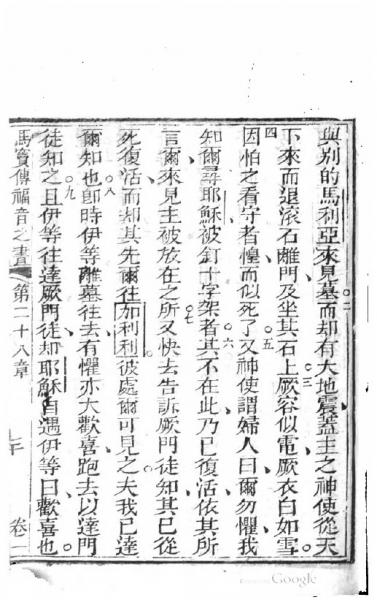 與別的馬利亞來見墓而却有大地震蓋主之神使從天
下來而退滾石離門及坐其石上厥容似電厥衣白如雪
因怕之看守者惶而似死了又神使謂婦人曰爾勿懼我
知爾尋耶穌被釘十字架者其不在此乃已復活依其所
言爾來見主被放在之所又快去告訴厥門徒知其已從
死復活而却其先爾往加利利彼處爾可見之夫我已達
爾知也即時伊等離墓往去有懼亦大歡喜跑去以達門
徒知之且伊等往達厥門徒却耶穌自遇伊等曰歡喜也
馬竇傳福音之書 第二十八章 卷一
二
三
四
五
六
七
八
九
Google